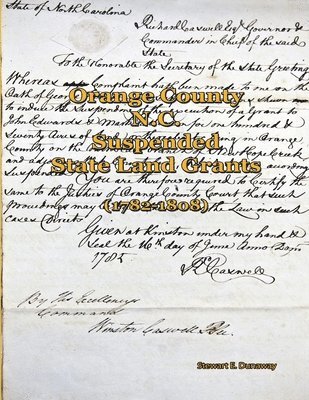 State of North Carolina
Richard Caswell Esqr. Governor &
Commander in Chief of the said
State
To the Honorable the Secretary of the State Greeting
Whereas Complaint hath been made to me on the
Oath of Geo
to induce the Suspension of the execution of a Grant to
John Edwards & for one hundred &
Seventy Acres of in Orange
County on the Hope Creek
and
Suspended You are therefore required to Certify the
same to the Justices of Orange County Court that such
proceedings may the Law in such
Cases directs
Given at Kinston under my hand &
Seal the 16th day of June Anno Dom
1785
Rd Caswell
By His Excellencys
Command
Winston Caswell
Orange County
N.C.
Suspended
State Land Grants
(1782-1808)
Stewart E. Dunaway